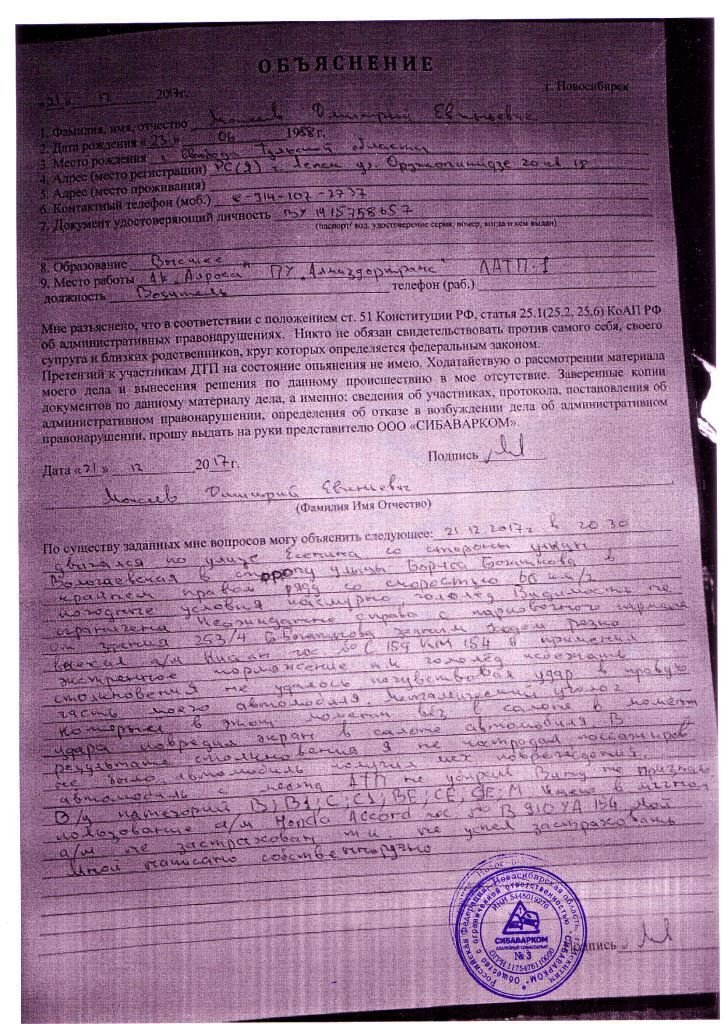 ОБЪЯСНЕНИЕ
«21» 12 2017г. г. Новосибирск
1. Фамилия, имя, отчество Моисеев Дмитрий Евгеньевич
2. Дата рождения «23» 06 1988г.
3. Место рождения г. Тульской области
4. Адрес (место регистрации) РС(Я) г. Ленск ул. Орджоникидзе 20 кв 18
5. Адрес (место проживания)
6. Контактный телефон (моб.) 8-914-107-2737
7. Документ удостоверяющий личность ВУ 1415758657
(паспорт/ вод. удостоверение серия, номер, когда и кем выдан)
8. Образование Высшее
9. Место работы АК „Алроса" ПУ „Алмаздортранс" ЛАТП-1
должность Водитель телефон (раб.)
Мне разъяснено, что в соответствии с положением ст. 51 Конституции РФ, статья 25.1(25.2, 25.6) КоАП РФ
об административных правонарушениях. Никто не обязан свидетельствовать против самого себя, своего
супруга и близких родственников, круг которых определяется федеральным законом.
Претензий к участникам ДТП на состояние опьянения не имею. Ходатайствую о рассмотрении материала
моего дела и вынесения решения по данному происшествию в мое отсутствие. Заверенные копии
документов по данному материалу дела, а именно: сведения об участниках, протокола, постановления об
административном правонарушении, определения об отказе в возбуждении дела об административном
правонарушении, прошу выдать на руки представителю ООО «СИБАВАРКОМ».
Дата «21» 12 2017г. Подпись
Моисеев Дмитрий Евгеньевич
(Фамилия Имя Отчество)
По существу заданных мне вопросов могу объяснить следующее: 21.12.2017г в 20 30
двигался по улице Есенина со стороны улицы
в сторону улицы Бориса Богаткова в
крайнем правом ряду со скоростью 60 км/ч
погодные условия пасмурно гололед Видимость не
ограничена Неожиданно справа с парковочного кармана
253/4 Б. Богаткова задним ходом резко
выехал а/м Нисан гос № С 159 КМ 154 я применил
экстренное торможение но гололед избежать
столкновения не удалось почувствовал удар в правую
часть моего автомобиля. Металлический уголок
который в этот момент вез в салоне в момент
удара повредил экран в салоне автомобиля В
результате столкновения я не пострадал пассажиров
не было автомобиль получил мех повреждения
автомобиль с места ДТП не убирал Вину не признаю
В/у категорий В; В1; С; С1; ВЕ; СЕ; М Имею в личном
пользование а/м Honda Accord гос № В 910 УА 154 Мой
а/м не застрахован т.к. не успел застраховать
Мной написано собственноручно
Подпись
Российская Федерация, Новосибирская область, г. Искитим
Общество с ограниченной ответственностью "СИБАВАРКОМ"
ИНН 5446019270
СИБАВАРКОМ
АВАРИЙНЫЙ КОМИССАРИАТ
№ 3
ОГРН 1175476110050